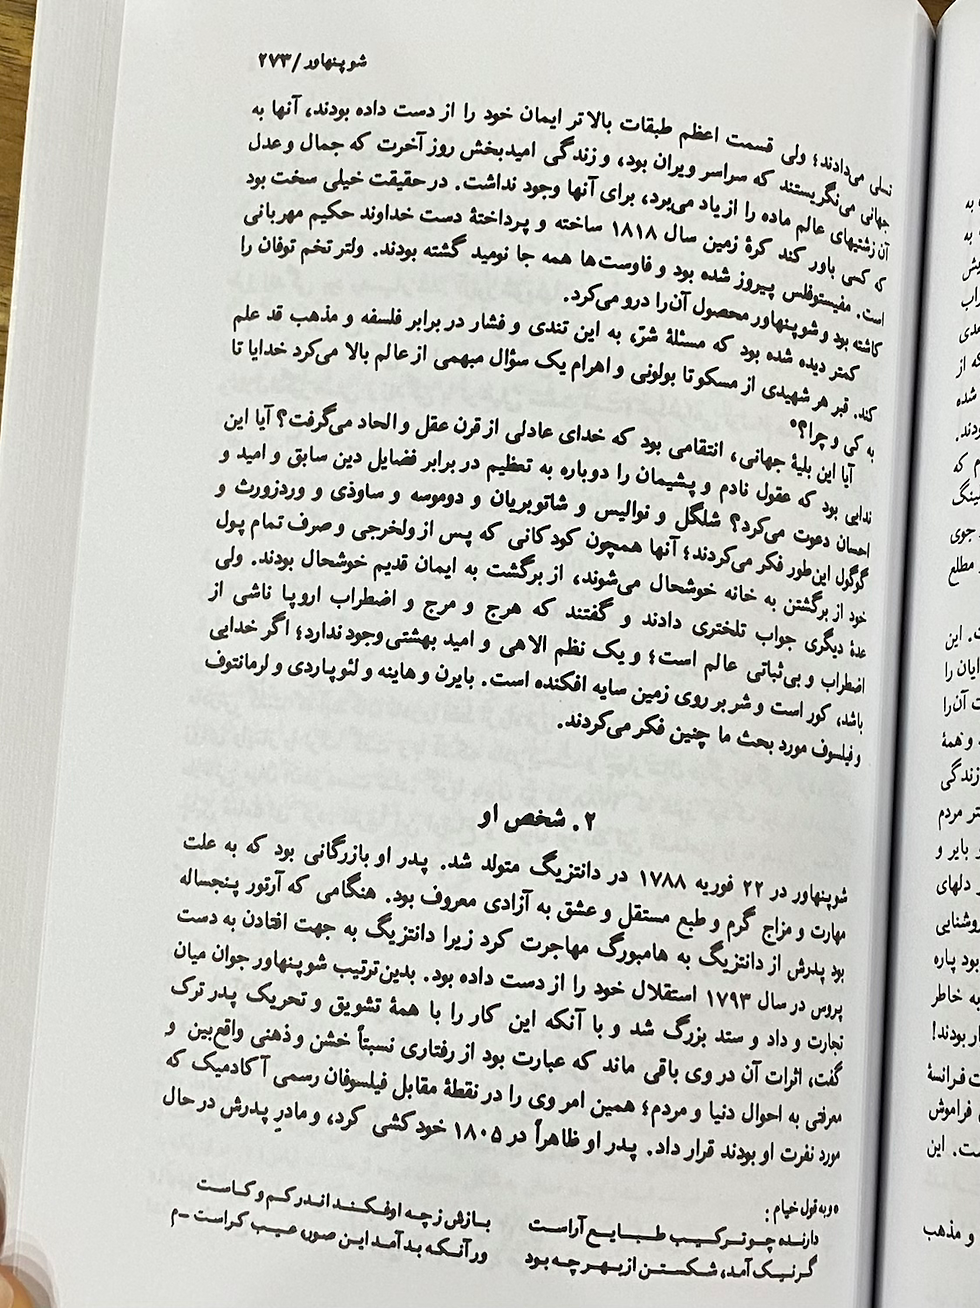 شوپنهاور/۲۷۳
تسلی می‌دادند؛ ولی قسمت اعظم طبقات بالاتر ایمان خود را از دست داده بودند، آنها به
جهانی می‌نگریستند که سراسر ویران بود، و زندگی امیدبخش روز آخرت که جمال و عدل
آن زشتیهای عالم ماده را از یاد می‌برد، برای آنها وجود نداشت. در حقیقت خیلی سخت بود
که کسی باور کند کرهٔ زمین سال ۱۸۱۸ ساخته و پرداختهٔ دست خداوند حکیم مهربانی
است. مفیستوفلس پیروز شده بود و فاوست‌ها همه جا نومید گشته بودند. ولتر تخم توفان را
کاشته بود و شوپنهاور محصول آن را درو می‌کرد.
کمتر دیده شده بود که مسئلهٔ شرّ، به این تندی و فشار در برابر فلسفه و مذهب قد علم
کند. قبر هر شهیدی از مسکو تا بولونی و اهرام یک سؤال مبهمی از عالم بالا می‌کرد خدایا تا
به کی و چرا؟*
آیا این بلیهٔ جهانی، انتقامی بود که خدای عادلی از قرن عقل و الحاد می‌گرفت؟ آیا این
ندایی بود که عقول نادم و پشیمان را دوباره به تعظیم در برابر فضایل دین سابق و امید و
احسان دعوت می‌کرد؟ شلگل و نوالیس و شاتوبریان و دوموسه و ساوذی و وردزورث و
گوگول این‌طور فکر می‌کردند؛ آنها همچون کودکانی که پس از ولخرجی و صرف تمام پول
خود از برگشتن به خانه خوشحال می‌شوند، از برگشت به ایمان قدیم خوشحال بودند. ولی
عدهٔ دیگری جواب تلختری دادند و گفتند که هرج و مرج و اضطراب اروپا ناشی از
اضطراب و بی‌ثباتی عالم است؛ و یک نظم الاهی و امید بهشتی وجود ندارد؛ اگر خدایی
باشد، کور است و شر بر روی زمین سایه افکنده است. بایرن و هاینه و لئوپاردی و لرمانتوف
و فیلسوف مورد بحث ما چنین فکر می‌کردند.
۲. شخص او
شوپنهاور در ۲۲ فوریه ۱۷۸۸ در دانتزیگ متولد شد. پدر او بازرگانی بود که به علت
مهارت و مزاج گرم و طبع مستقل و عشق به آزادی معروف بود. هنگامی که آرتور پنجساله
بود پدرش از دانتزیگ به هامبورگ مهاجرت کرد زیرا دانتزیگ به جهت افتادن به دست
پروس در سال ۱۷۹۳ استقلال خود را از دست داده بود. بدین‌ترتیب شوپنهاور جوان میان
تجارت و داد و ستد بزرگ شد و با آنکه این کار را با همهٔ تشویق و تحریک پدر ترک
گفت، اثرات آن در وی باقی ماند که عبارت بود از رفتاری نسبتاً خشن و ذهنی واقع‌بین و
معرفتی به احوال دنیا و مردم؛ همین امر وی را در نقطهٔ مقابل فیلسوفان رسمی آکادمیک که
مورد نفرت او بودند قرار داد. پدر او ظاهراً در ۱۸۰۵ خودکشی کرد، و مادرِ پدرش در حال
* و به قول خیام:
دارنده چو ترکیب طبایع آراست بازش ز چه او فکند اندر کم و کاست
گر نیک آمد، شکستن از بهر چه بود ور آنکه بد آمد این صور، عیب کراست - م
به
به
اب
که از
شده
بودند.
م که
جوی
مطلع
ت. این
آن را
و همهٔ
زندگی
مردم
بایر و
دلهای
روشنایی
بود پاره
به خاطر
بودند!
فرانسهٔ
فراموش
ست. این
و مذهب